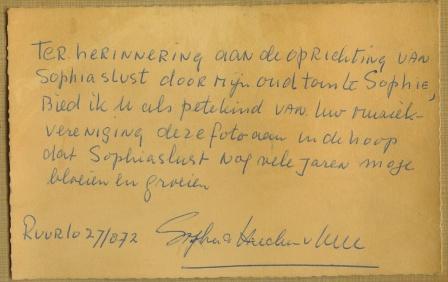 Ter herinnering aan de oprichting van
Sophiaslust door mijn oud tante Sophie,
Bied ik U als petekind van Uw muziek-
vereniging deze foto aan in de hoop
dat Sophiaslust nog vele jaren moge
bloeien en groeien
Ruurlo 27/872
Sophie